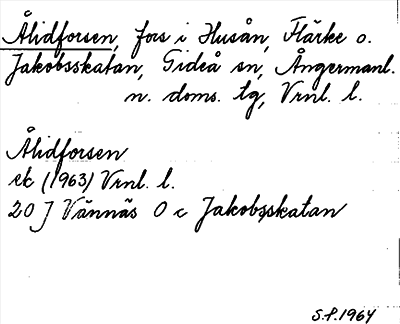 Ålidforsen, fors i Husån, Flärke o.
Jakobsskatan, Gideå sn, Ångermanl.
n. doms. tg, Vrnl. l.
Ålidforsen
ek (1963) Vrnl. l.
20 J Vännäs O c Jakobsskatan
S.P. 1964